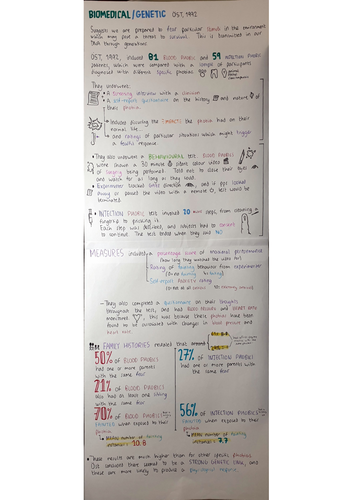 BIOMEDICAL/GENETIC OST, 1992
Suggests we are prepared to fear particular stimuli in the environment
which may pose a threat to survival. This is transmitted in our
DNA through generations
OST, 1992, included 81 BLOOD PHOBICS and 59 INJECTION PHOBIC
patients, which were compared with a sample of participants
diagnosed with different specific phobias
They underwent:
• A screening interview with a clinician
• A self-report questionnaire on the history and nature of
their phobia
• Included discussing the IMPACTS the phobia had on their
normal life
• and ratings of particular situations which might trigger
a fearful response
• They also underwent a BEHAVIOURAL test. BLOOD PHOBICS
were shown a 30 minute silent colour video
of surgery being performed. Told not to close their eyes
and watch for as long as they could.
• Experimenter tracked their direction, and if pps looked
away or paused the video with a remote, test would be
terminated
• INJECTION PHOBIC test involved 20 steps, from cleaning a
fingertip to pricking it.
Each step was described, and patients had to
to continue. The test ended when they said NO!
MEASURES included a percentage score of maximal performance
(how long they watched the video for)
• Rating of fainting behaviour from experimenter
• Self-report ANXIETY rating
• They also completed a questionnaire on their thoughts
throughout the test, and had BLOOD PRESSURE and HEART RATE
monitored. This was because their phobias have been
found to be associated with changes in blood pressure and
heart rate.
FAMILY HISTORIES revealed that around
50% of BLOOD PHOBICS
had one or more parents
with the same fear
27% of INJECTION PHOBICS
had one or more parents with
the same fear
21% of BLOOD PHOBICS
also had at least one sibling
with the same fear
70% of BLOOD PHOBICS
FAINTED when exposed to their
phobia
↳ Mean number of fainting
instances = 10.8
56% of INJECTION PHOBICS
FAINTED when exposed to their
phobia
↳ Mean number of fainting
instances = 7.7
• These results are much higher than for other specific phobias
Ost claimed there seemed to be a STRONG GENETIC LINK, and
these are more likely to produce a physiological response